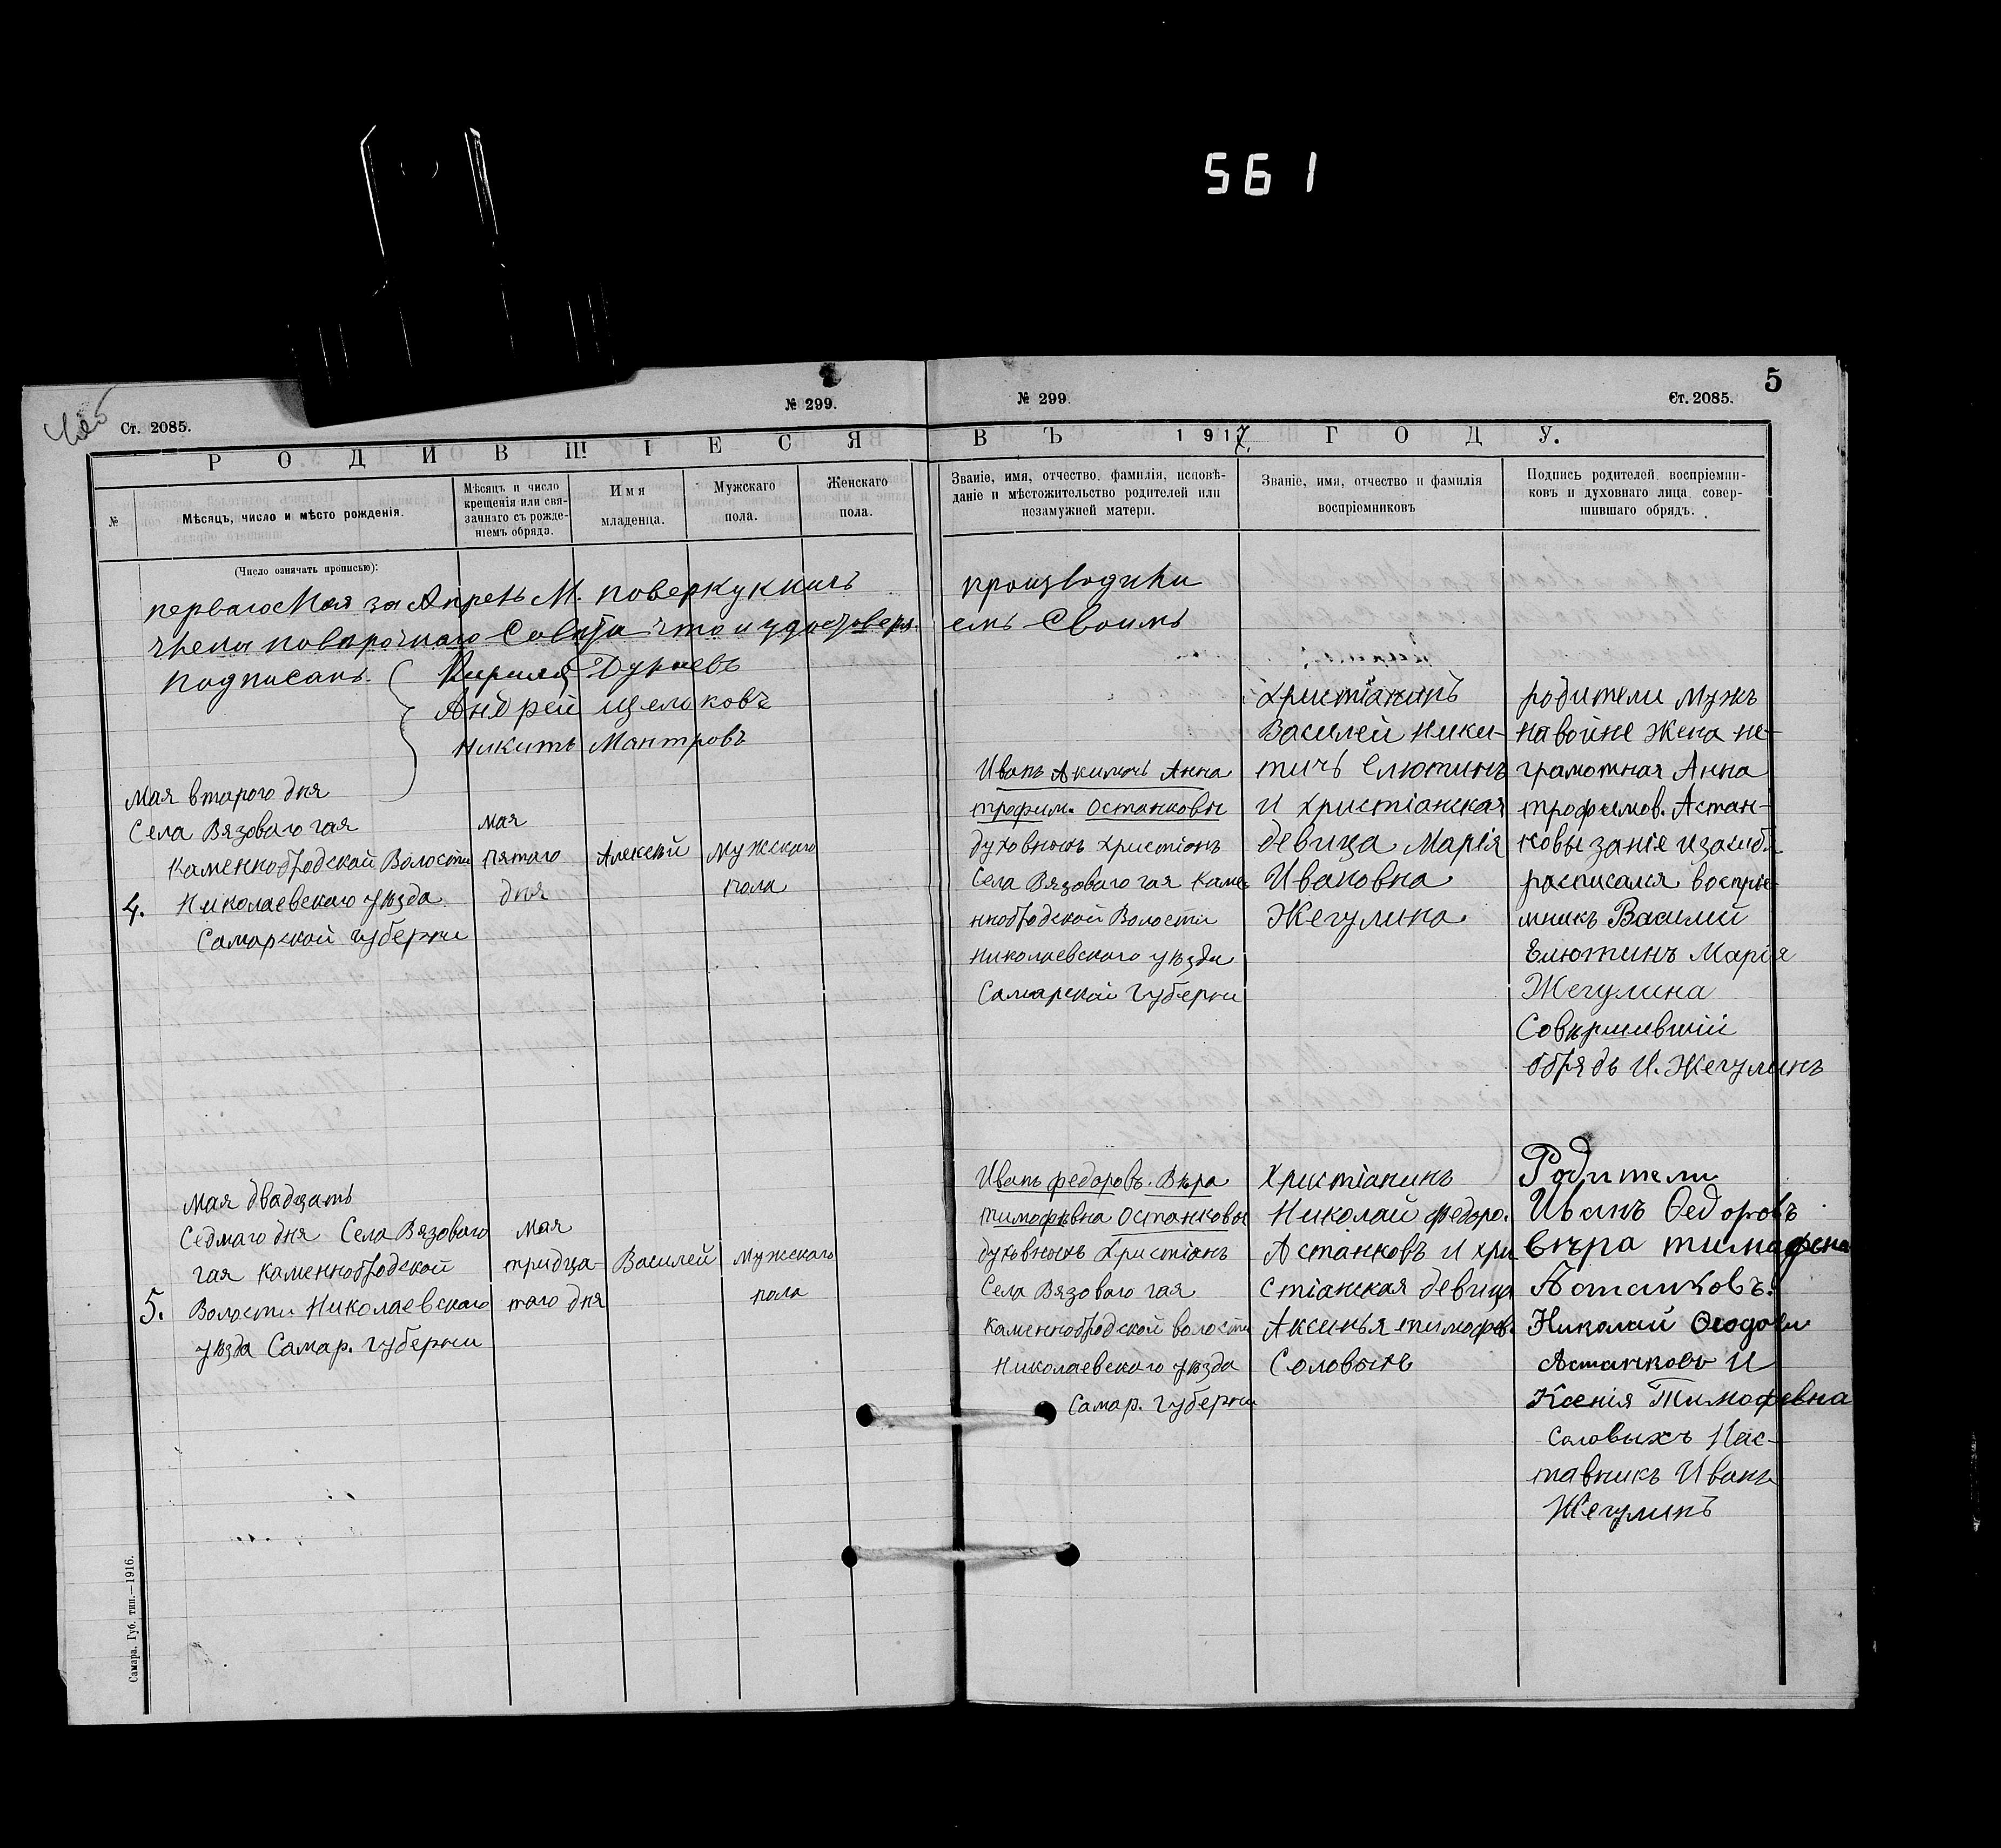 561
5
№ 299.
№ 299.
Ст. 2085.
Ст. 2085.
РОДИВШІЕСЯ ВЪ 1917 ГОДУ.
№
Мѣсяцъ, число и мѣсто рожденія.
Мѣсяцъ и число
крещенія или свя-
заннаго съ рожде-
ніемъ обряда.
Имя
младенца.
Мужскаго
пола.
Женскаго
пола.
Званіе, имя, отчество, фамилія, исповѣ-
даніе и мѣстожительство родителей или
незамужней матери.
Званіе, имя, отчество и фамилія
воспріемниковъ
Подпись родителей воспріемни-
ковъ и духовнаго лица, совер-
шившаго обрядъ.
(Число означать прописью):
перваго Мая за Апрель М. поверку книгъ производили
члены поверочнаго Совета что и удостоверя- емъ Своимъ
Подписань.
Кирила Дунаевъ
Андрей Щелоковъ
Никить Мантровъ
4.
Мая втораго дня
Села Вязоваго гая
Каменнобродской Волости
Николаевскаго уѣзда
Самарской губерни
мая
пятаго
дня
Алексѣй
Мужскаго
пола
Иванъ Акимочь Анна
трофим. Останковы
духовныхъ христіонъ
Села Вязоваго гая Каме-
ннобродской Волости
Николаевскаго уѣзда
Самарской Губерни
христіанинъ
Василей Ники-
тичъ Елютинъ
и христіанская
девица Марія
Ивановна
Жегулина.
родители мужъ
на войне Жена не-
грамотная Анна
трофимов. Астан-
ковы занiе и засибя
расписался воспріе-
мникъ Василий
Елютинъ Марія
Жегулина
Совѣршившій
обрядъ И. Жегулинъ
5.
Мая двадцать
Седмаго дня Села Вязоваго
гая Каменнобродской
Волости Николаевскаго
уѣзда Самар. губерни
мая
тридца-
таго дня
Василей
Мужскаго
пола
Иванъ федоровъ. Вѣра
тимофѣвна Останковы
духовныхъ Христіанъ
Села Вязоваго гая
Каменнобродской волости
Николаевскаго уѣзда
Самар. губерни
Христіанинъ
Николай Федоро.
Астанковъ и хри
стіанская девица
Аксинья тимофев.
Соловыхъ
Родители
Иванъ Ѳедоровъ
вѣра тимафена
Астанковъ.
Николай
Астанковъ И
Ксенія Тимофевна
Соловыхъ Нас-
тавникъ Иванъ
Жегулинъ
Самара, Губ. тип.—1916.